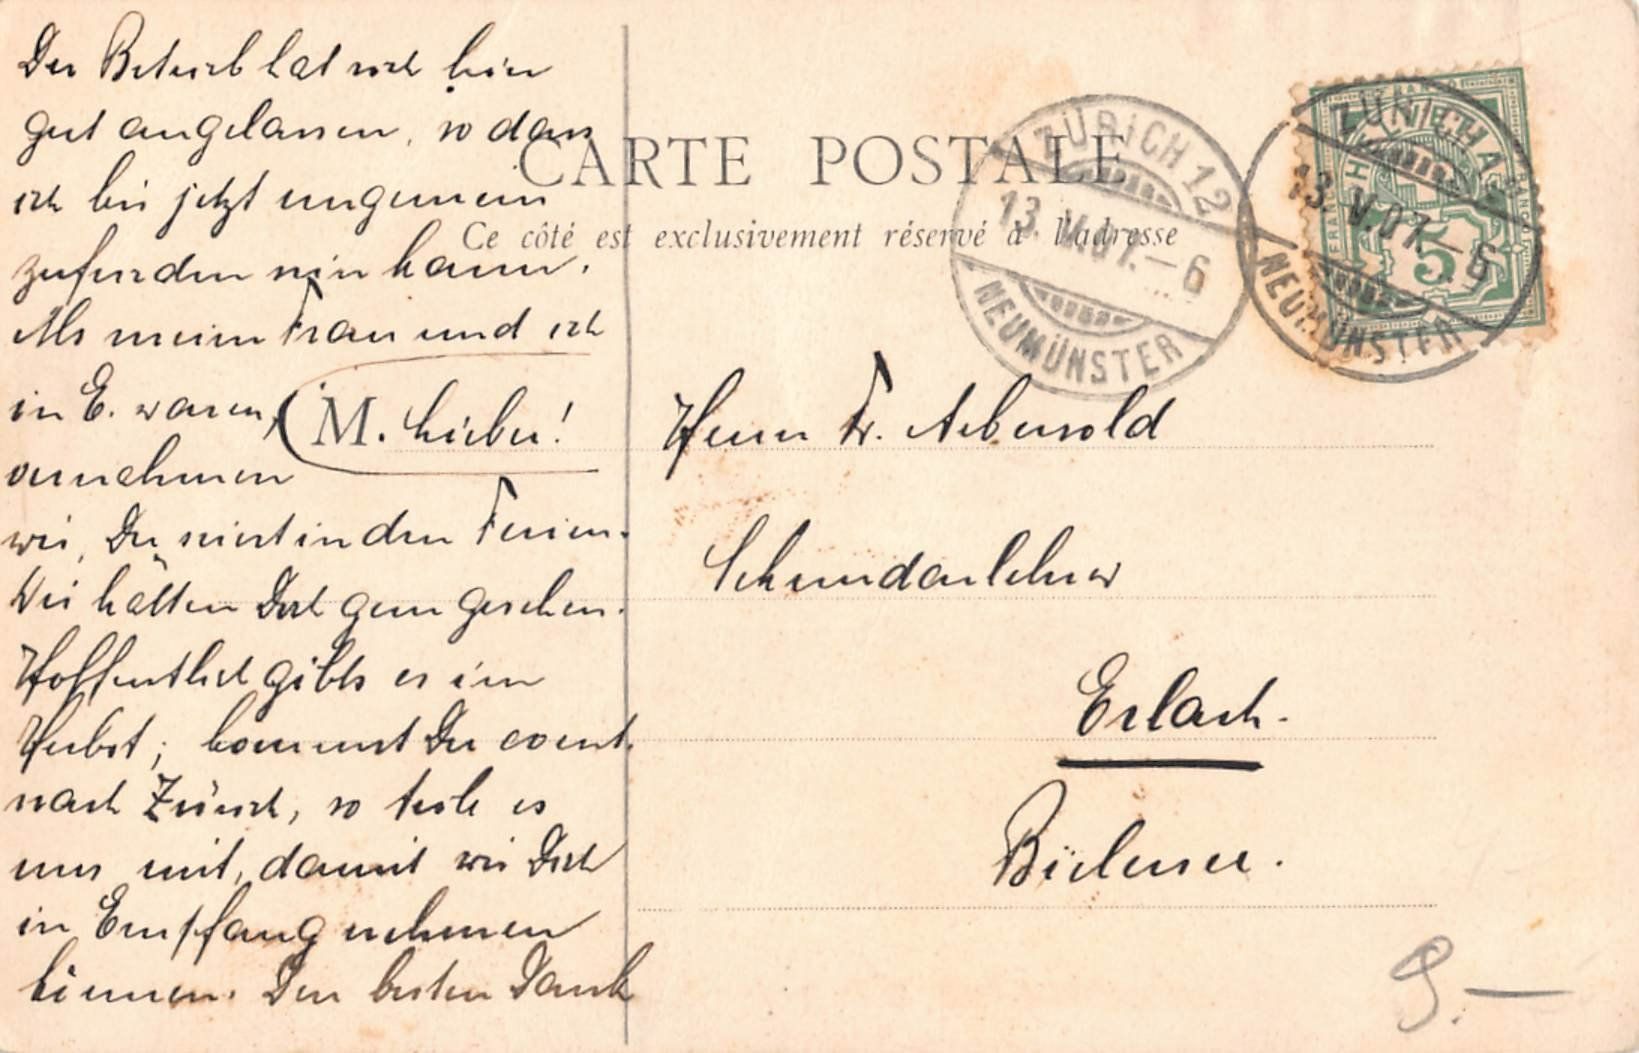 M. Lieber!
Der Betrieb hat sich hier
gut angelassen, so dass
ich bis jetzt ungemein
zufrieden sein kann.
Als meine Frau und ich
in E. waren,
vernahmen
wir, Du seiest in den Ferien.
Wir hätten Dich gern gesehen.
Hoffentlich gibts es im
Herbst; kommst Du event.
nach Zürich, so teile es
uns mit, damit wir Dich
in Empfang nehmen
können. Den besten Dank
CARTE POSTALE
Ce côté est exclusivement réservé à l'adresse
ZÜRICH 12
13.V.07.–6
NEUMÜNSTER
ZÜRICH
13.V.07.–6
NEUMÜNSTER
FRANCO
5
Herrn Fr. Aebersold
Sekundarlehrer
Erlach.
Bielersee.
9.—